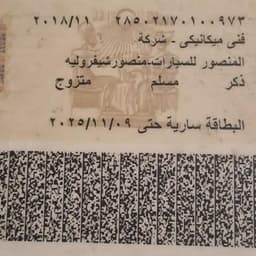 ٢٨٥٠٢١٧٠١٠٠٩٧٣ ٢٠١٨/١١
فنى ميكانيكى - شركة
المنصور للسيارات-منصورشيفروليه
ذكر مسلم متزوج
البطاقة سارية حتى ٢٠٢٥/١١/٠٩